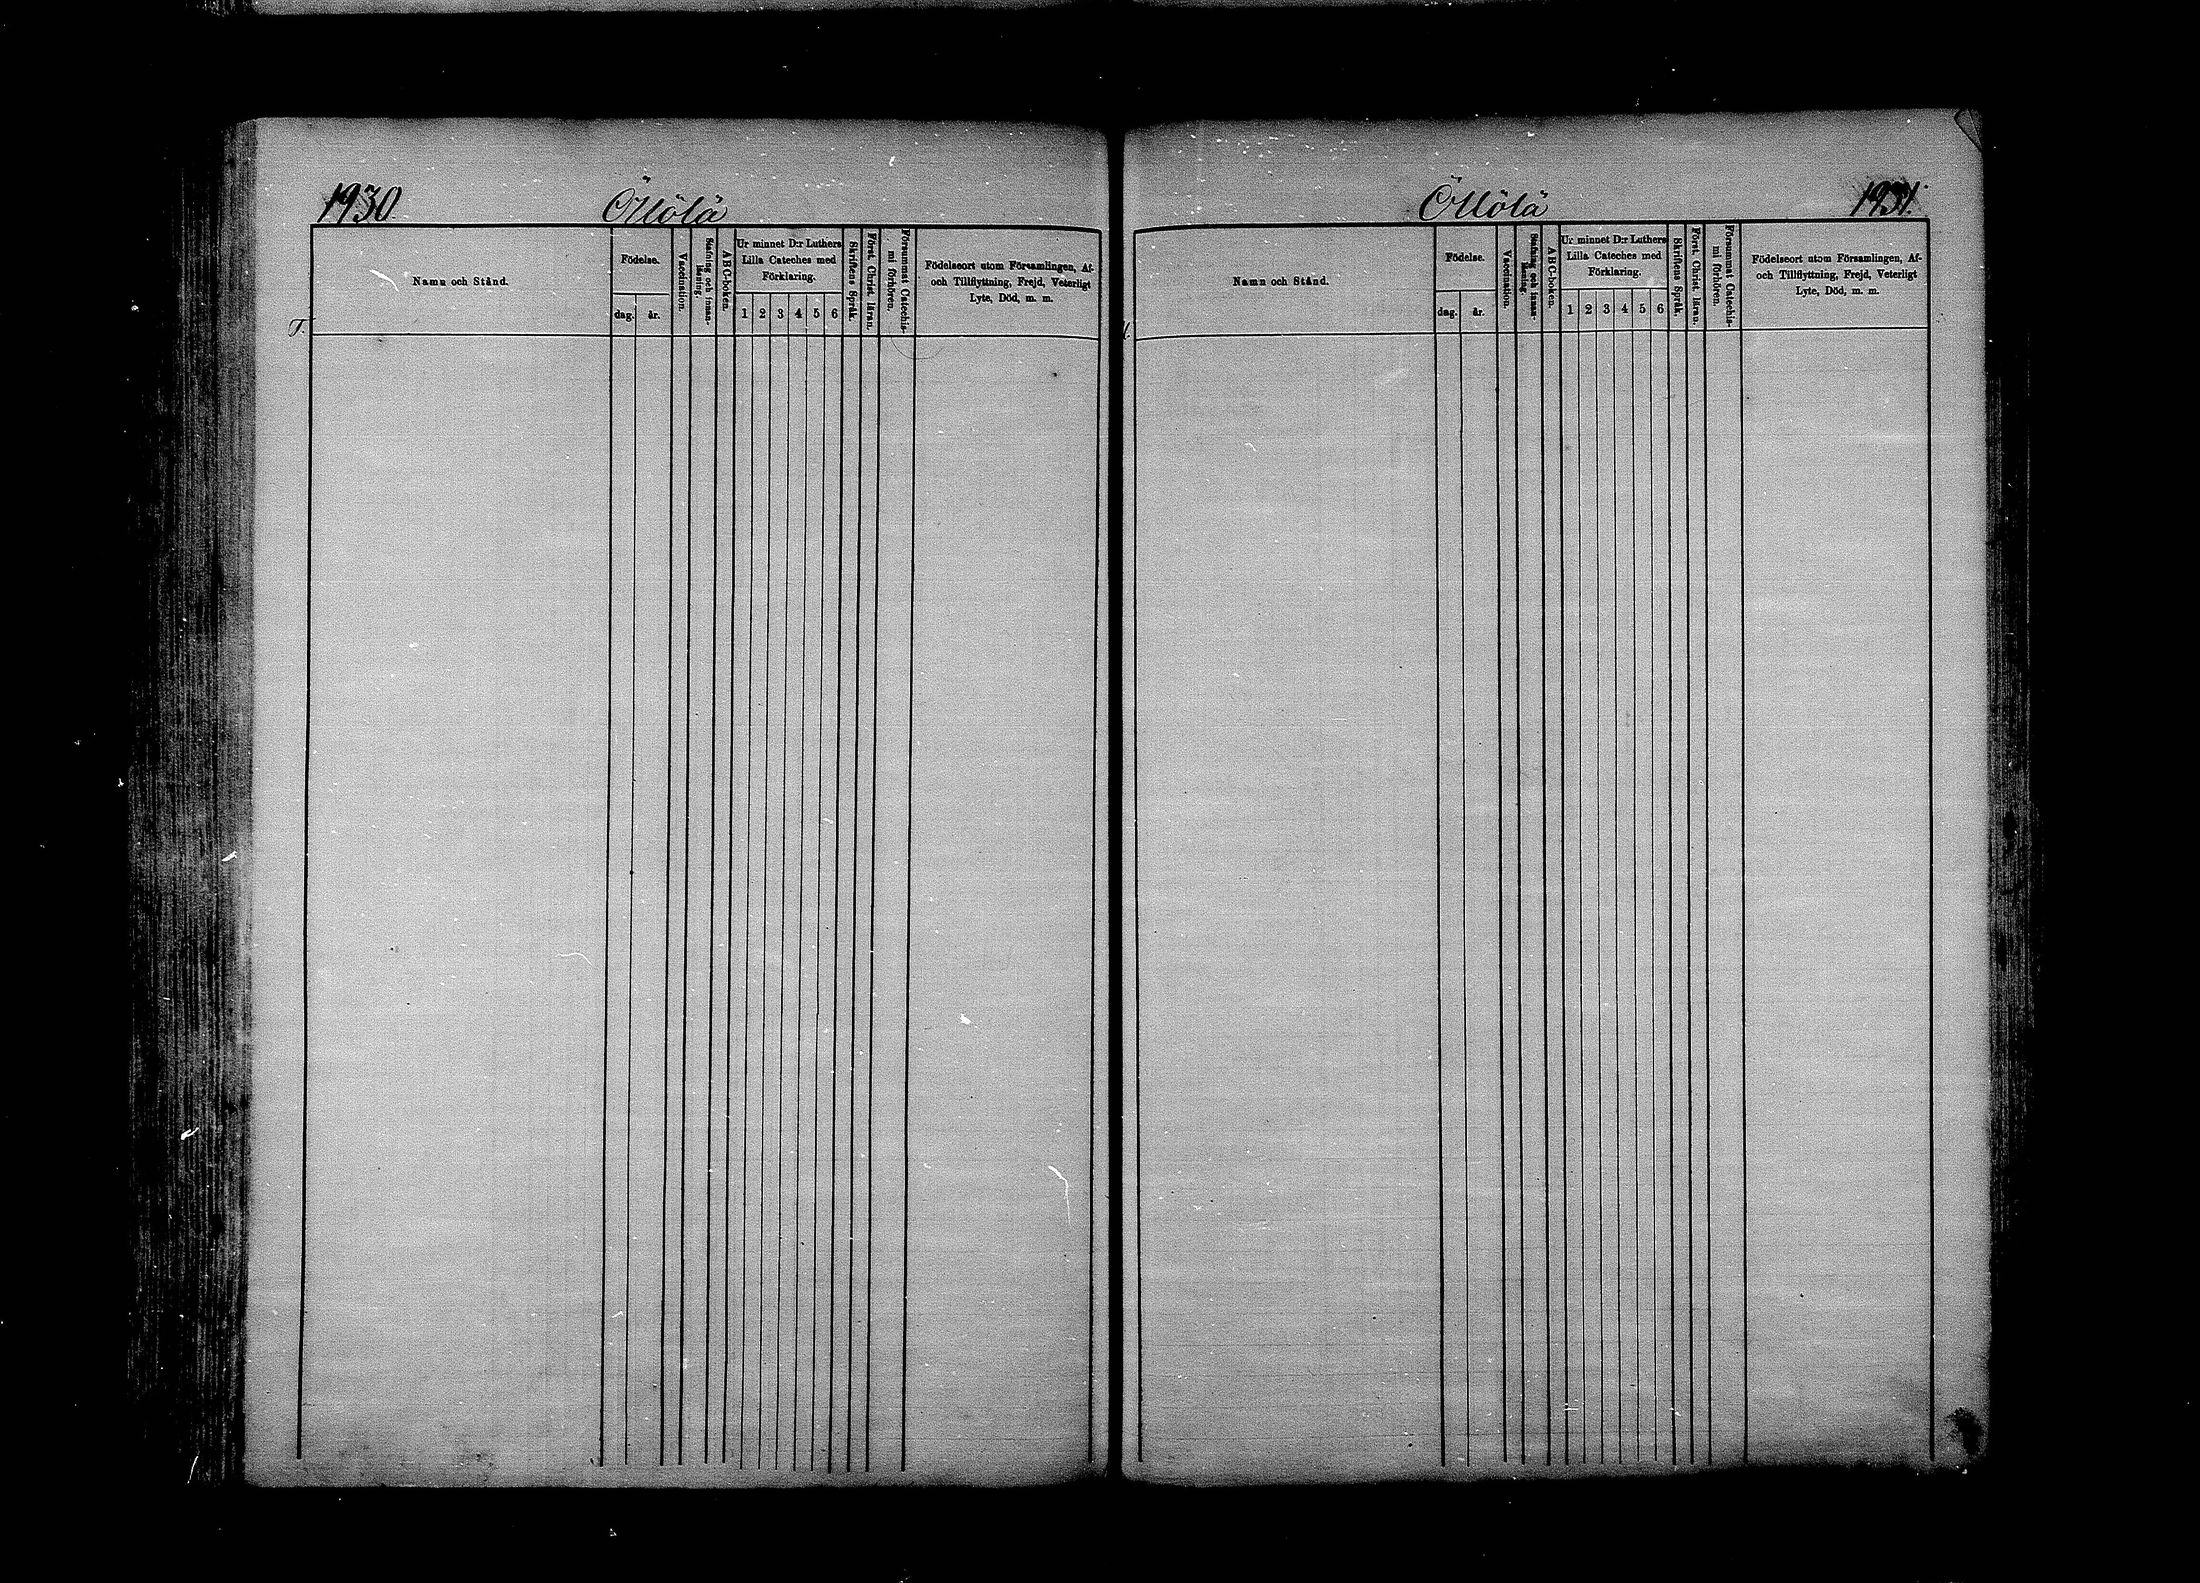 1930.
Öllölä
Namn och Stånd.
Födelse.
dag.
år.
Vaccination.
Stafning och innan-
läsning.
ABC-boken.
Ur minnet D:r Luthers
Lilla Cateches med
Förklaring.
1 2 3 4 5 6
Skriftens Språk.
Först. Christ. läran.
Försummat Catechis-
mi förhören.
Födelseort utom Församlingen, Af-
och Tillflyttning, Frejd, Veterligt
Lyte, Död, m. m.
T.
Öllölä
1931.
Namn och Stånd.
Födelse.
dag.
år.
Vaccination.
Stafning och innan-
läsning.
ABC-boken.
Ur minnet D:r Luthers
Lilla Cateches med
Förklaring.
1 2 3 4 5 6
Skriftens Språk.
Först. Christ. läran.
Försummat Catechis-
mi förhören.
Födelseort utom Församlingen, Af-
och Tillflyttning, Frejd, Veterligt
Lyte, Död, m. m.